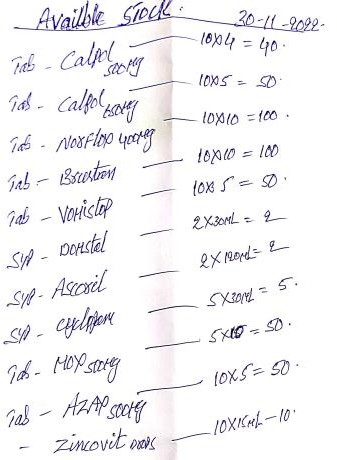 Availble Stock. 30-11-2022-
Tab - Calpol 500mg — 10x4 = 40.
Tab - Calpol 650mg — 10x5 = 50.
Tab - Norflox 400mg — 10x10 = 100.
Tab - — 10x10 = 100
Tab - Vomistop — 10x5 = 50.
Syp - Domstal — 2x30ml = 2
Syp - Ascoril — 2x120ml = 2
Syp - Cyclopam — 5x30ml = 5.
Tab - MOX 500mg — 5x10 = 50.
Tab - AZAP 500mg — 10x5 = 50.
- Zincovit DROPS — 10x15ml - 10.